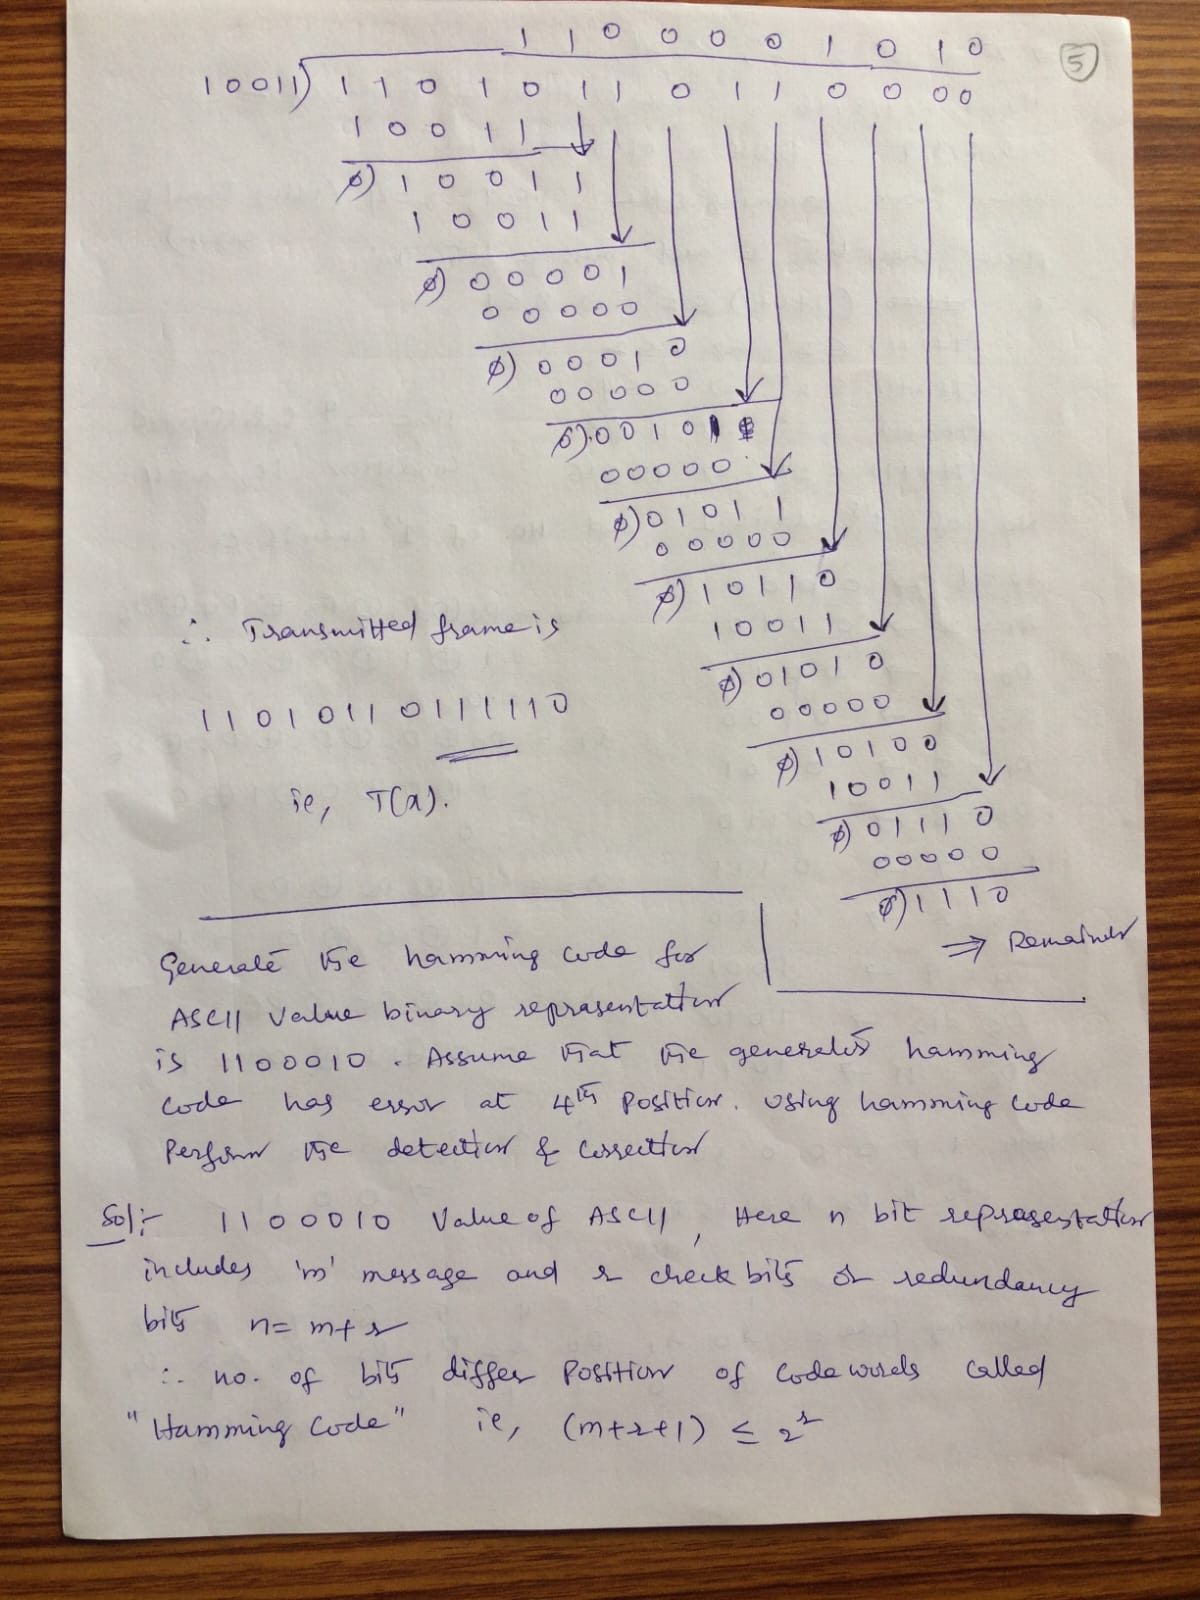 5
1 1 0 0 0 0 1 0 1 0
10011) 1 1 0 1 0 1 1 0 1 1 0 0 0 0
1 0 0 1 1
0) 1 0 0 1 1
1 0 0 1 1
0) 0 0 0 0 1
0 0 0 0 0
0) 0 0 0 1 0
0 0 0 0 0
0) 0 0 1 0 1
0 0 0 0 0
0) 0 1 0 1 1
0 0 0 0 0
0) 1 0 1 1 0
1 0 0 1 1
0) 0 1 0 1 0
0 0 0 0 0
0) 1 0 1 0 0
1 0 0 1 1
0) 0 1 1 1 0
0 0 0 0 0
0) 1 1 1 0
⇒ Remainder
∴ Transmitted frame is
1 1 0 1 0 1 1 0 1 1 1 1 1 0
ie, T(x).
Generate the hamming code for
ASCII value binary representation
is 1100010 . Assume that the generated hamming
code has error at 4th position. using hamming code
Perform the detection & correction
Sol:- 1100010 value of ASCII, Here n bit representation
includes 'm' message and r check bits or redundancy
bits n= m+r
∴ no. of bits differ position of code words called
"Hamming Code" ie, (m+r+1) ≤ 2^r